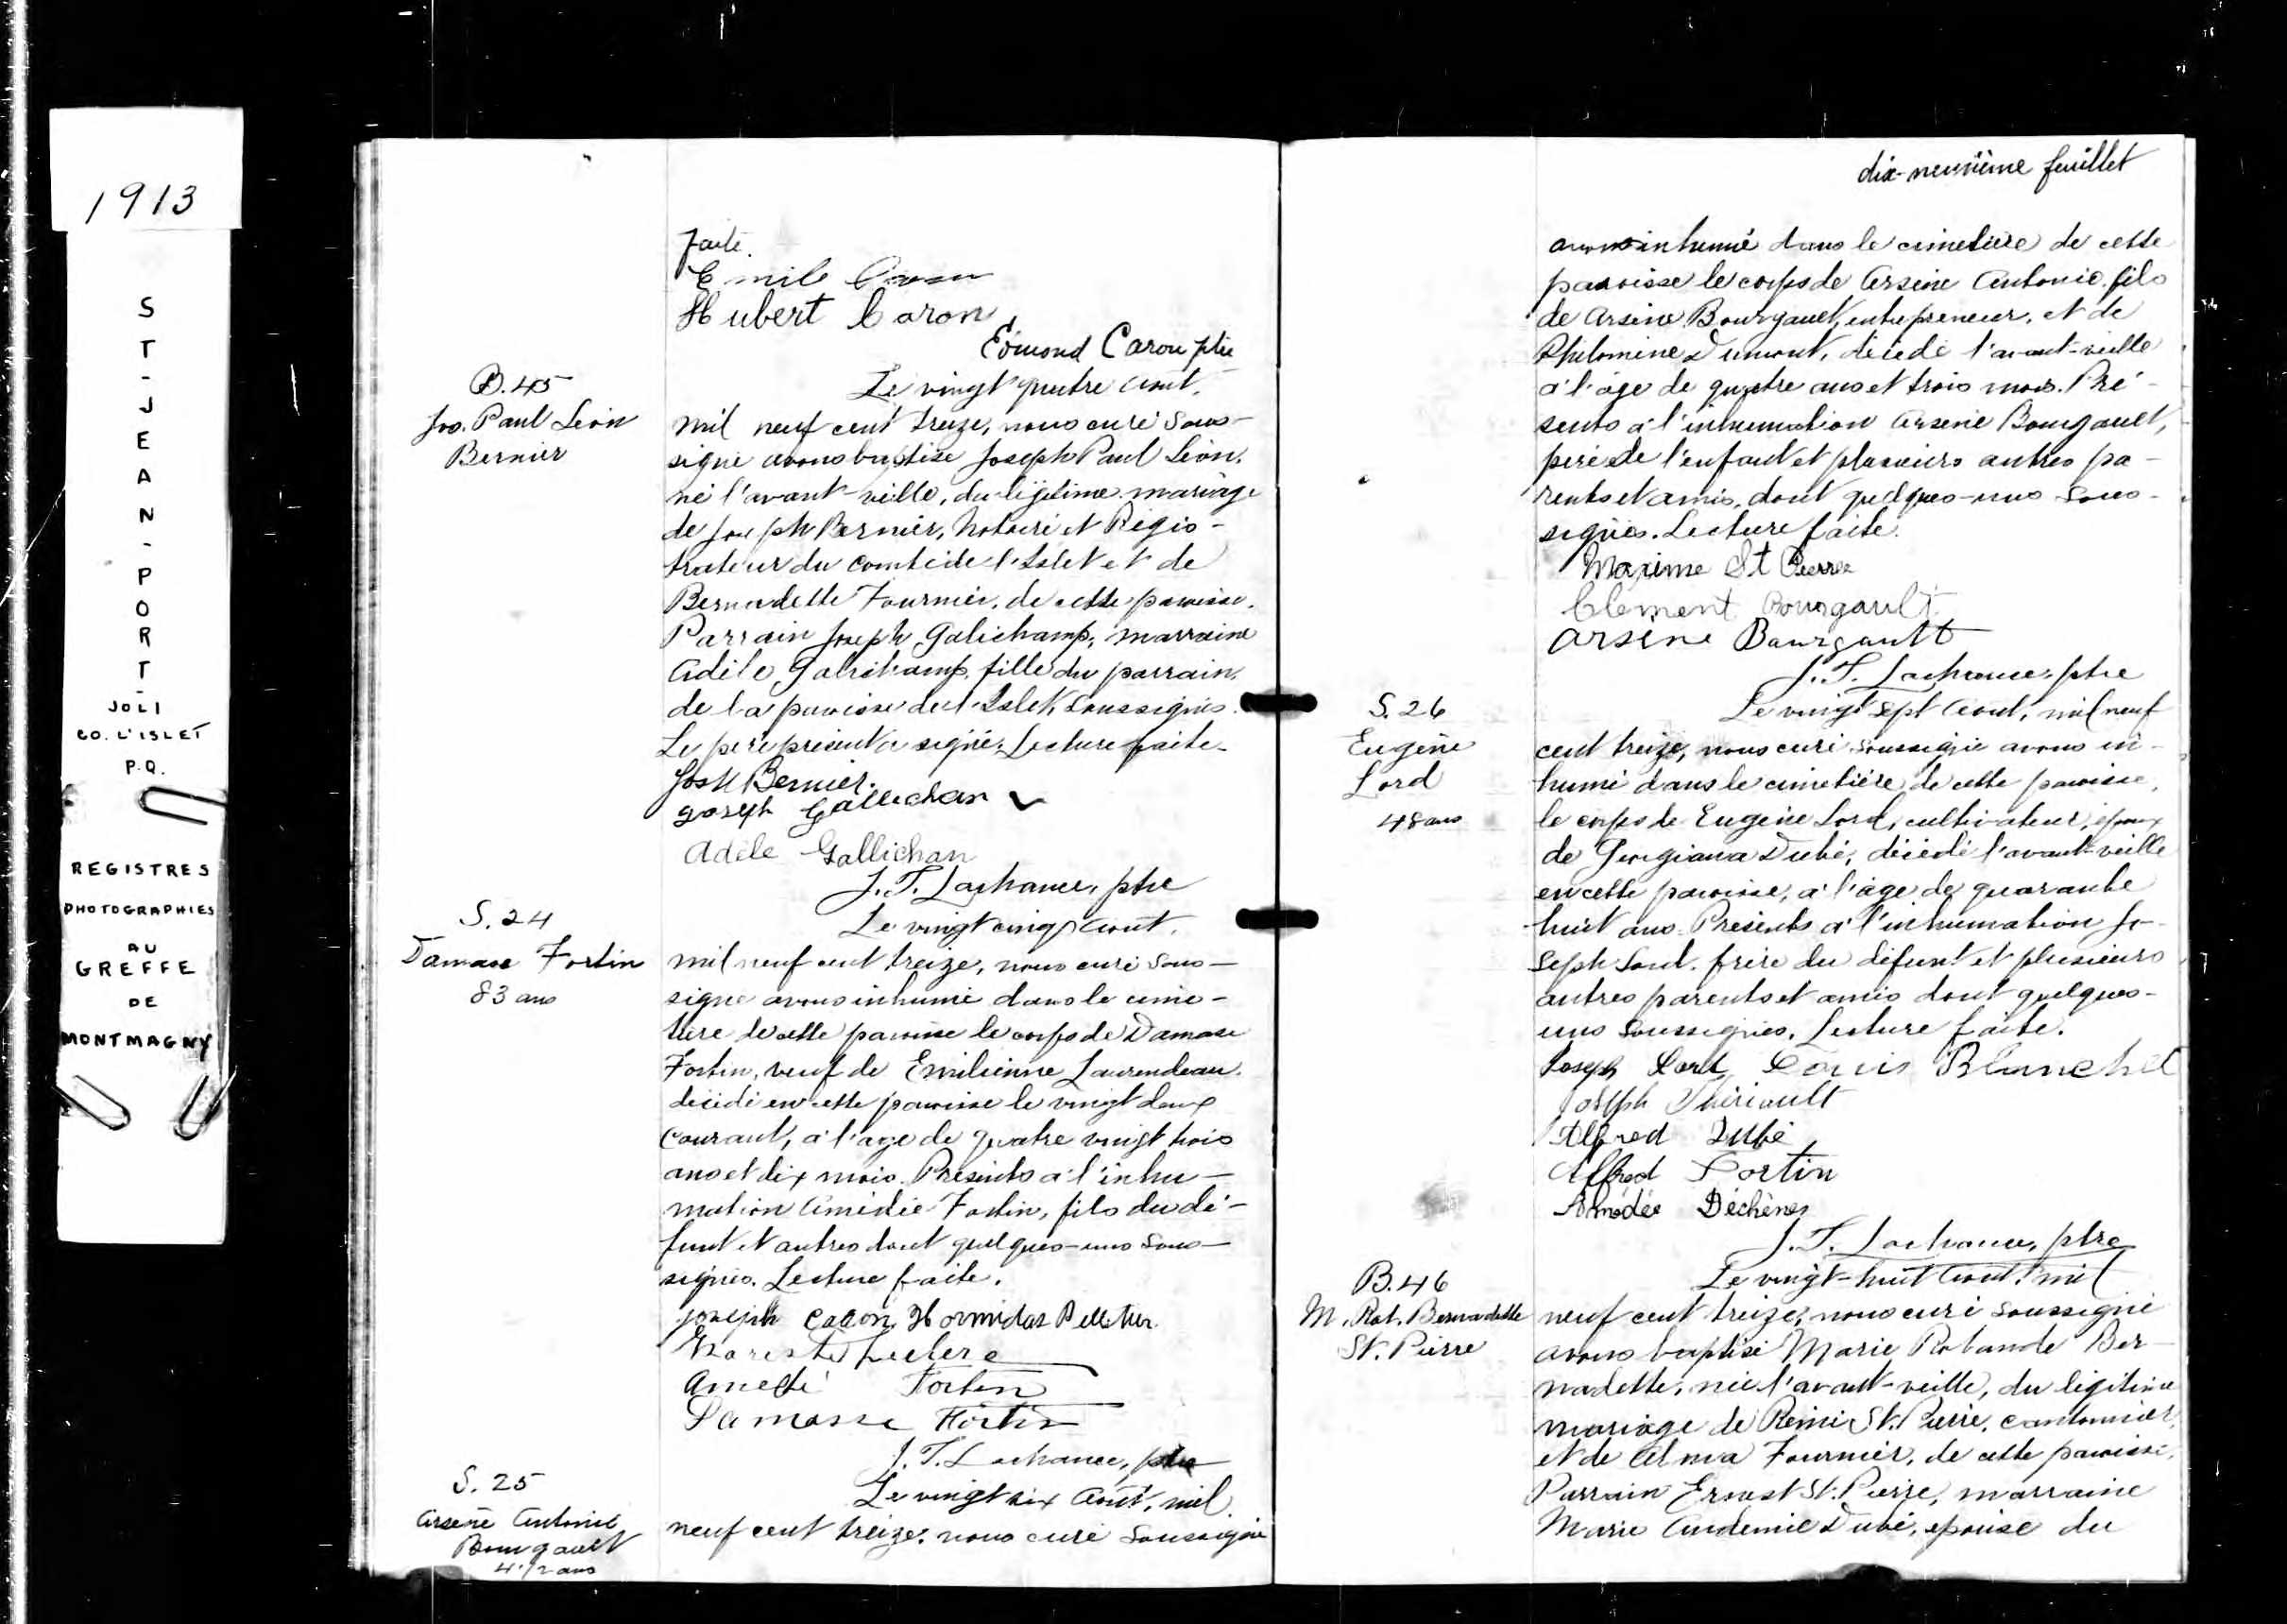 1913
ST-JEAN-PORT-
JOLI
CO. L'ISLET
P.Q.
REGISTRES
PHOTOGRAPHIES
AU
GREFFE
DE
MONTMAGNY
faite.
Emile Caron
Hubert Caron
Edmond Caron ptre
B.45
Jos. Paul Léon
Bernier
Le vingt quatre Août,
mil neuf cent treize, nous curé sous-
signé avons baptisé Joseph Paul Léon,
né l'avant-veille, du légitime mariage
de Joseph Bernier, Notaire et Régis-
trateur du comté de l'Islet et de
Bernadette Fournier, de cette paroisse.
Parrain Joseph Galichamp, marraine
Adèle Galichamp, fille du parrain,
de la paroisse de l'Islet, soussignés.
Le père présent a signé. Lecture faite.
Jos H Bernier.
Joseph Gallichan
Adèle Gallichan
J. T. Lachance, ptre
S. 24
Damase Fortin
83 ans
Le vingt cinq Août,
mil neuf cent treize, nous curé sous-
signé avons inhumé dans le cime-
tière de cette paroisse le corps de Damase
Fortin, veuf de Emilienne Laurendeau,
décédé en cette paroisse le vingt deux
courant, à l'age de quatre vingt trois
ans et dix mois. Présents à l'inhu-
mation Amédée Fortin, fils du dé-
funt et autres dont quelques-uns sous-
signés. Lecture faite.
Joseph Caron Hormidas Pelletier
Leclerc
Amedé Fortin
Damasse Fortin
J. T. Lachance, ptre
S. 25
Arsène Antonio
Bourgault
4 1/2 ans
Le vingt six Août, mil
neuf cent treize, nous curé soussigné
dix-neuvième feuillet
avons inhumé dans le cimetière de cette
paroisse le corps de Arsène Antonio, fils
de Arsène Bourgault, entrepreneur, et de
Philomène Dumont, décédé l'avant-veille
à l'âge de quatre ans et trois mois. Pré-
sents à l'inhumation Arsène Bourgault,
père de l'enfant et plusieurs autres pa-
rents et amis, dont quelques-uns sous-
signés. Lecture faite.
Maxime St Pierre
Clément Bourgault
Arsène Bourgault
J. T. Lachance, ptre
S. 26
Eugène
Lord
48 ans
Le vingt sept Août, mil neuf
cent treize, nous curé soussigné avons in-
humé dans le cimetière de cette paroisse,
le corps de Eugène Lord, cultivateur, époux
de Georgiana Dubé, décédé l'avant-veille
en cette paroisse, à l'âge de quarante
huit ans. Présents à l'inhumation Jo-
seph Lord, frère du défunt et plusieurs
autres parents et amis dont quelques-
uns soussignés. Lecture faite.
Joseph Lord Louis Blanchet
Joseph Thériault
Alfred Dubé
Alfred Fortin
Amédée Déchènes
J. T. Lachance, ptre
B.46
M. Rol. Bernadette
St. Pierre
Le vingt-huit Août, mil
neuf cent treize, nous curé soussigné
avons baptisé Marie Rolande Ber-
nadette, née l'avant-veille, du légitime
mariage de Rémi St. Pierre, cantonnier,
et de Alma Fournier, de cette paroisse.
Parrain Ernest St. Pierre, marraine
Marie Dubé, épouse du